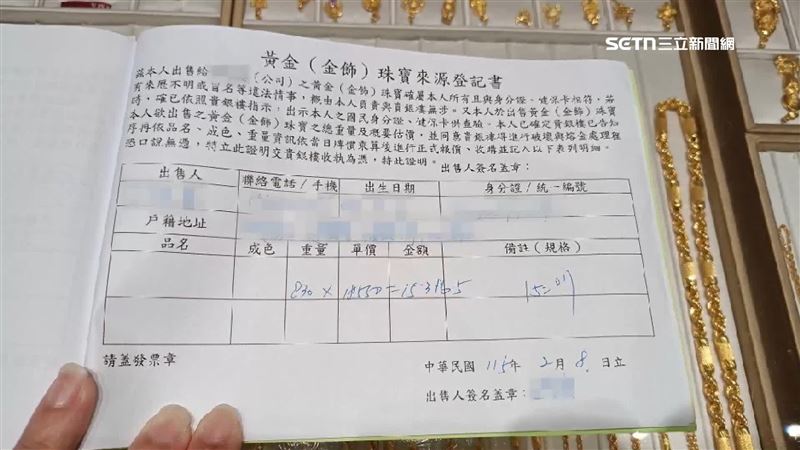 SETN三立新聞網
黃金（金飾）珠寶來源登記書
茲本人出售給 （公司）之黃金（金飾）珠寶確屬本人所有且與身分證、健保卡相符，若
有來歷不明或冒名等違法情事，概由本人負責與貴銀樓無涉。又本人於出售黃金（金飾）珠寶
時，確已依照貴銀樓指示，出示本人之國民身分證、健保卡供查驗。本人已確定貴銀樓已告知
本人欲出售之黃金（金飾）珠寶之總重量及概要估價，並同意貴銀樓得進行破壞與熔金處理程
序再依品名、成色、重量資訊依當日牌價乘算後進行正式報價、收購並記入以下表列明細。
恐口說無憑，特立此證明交貴銀樓收執為憑，特此證明。 出售人簽名蓋章：
出售人 聯絡電話/手機 出生日期 身分證/統一編號
戶籍地址
品名 成色 重量 單價 金額 備註（規格）
請蓋發票章
中華民國 115年 2月 8 日立
出售人簽名蓋章：